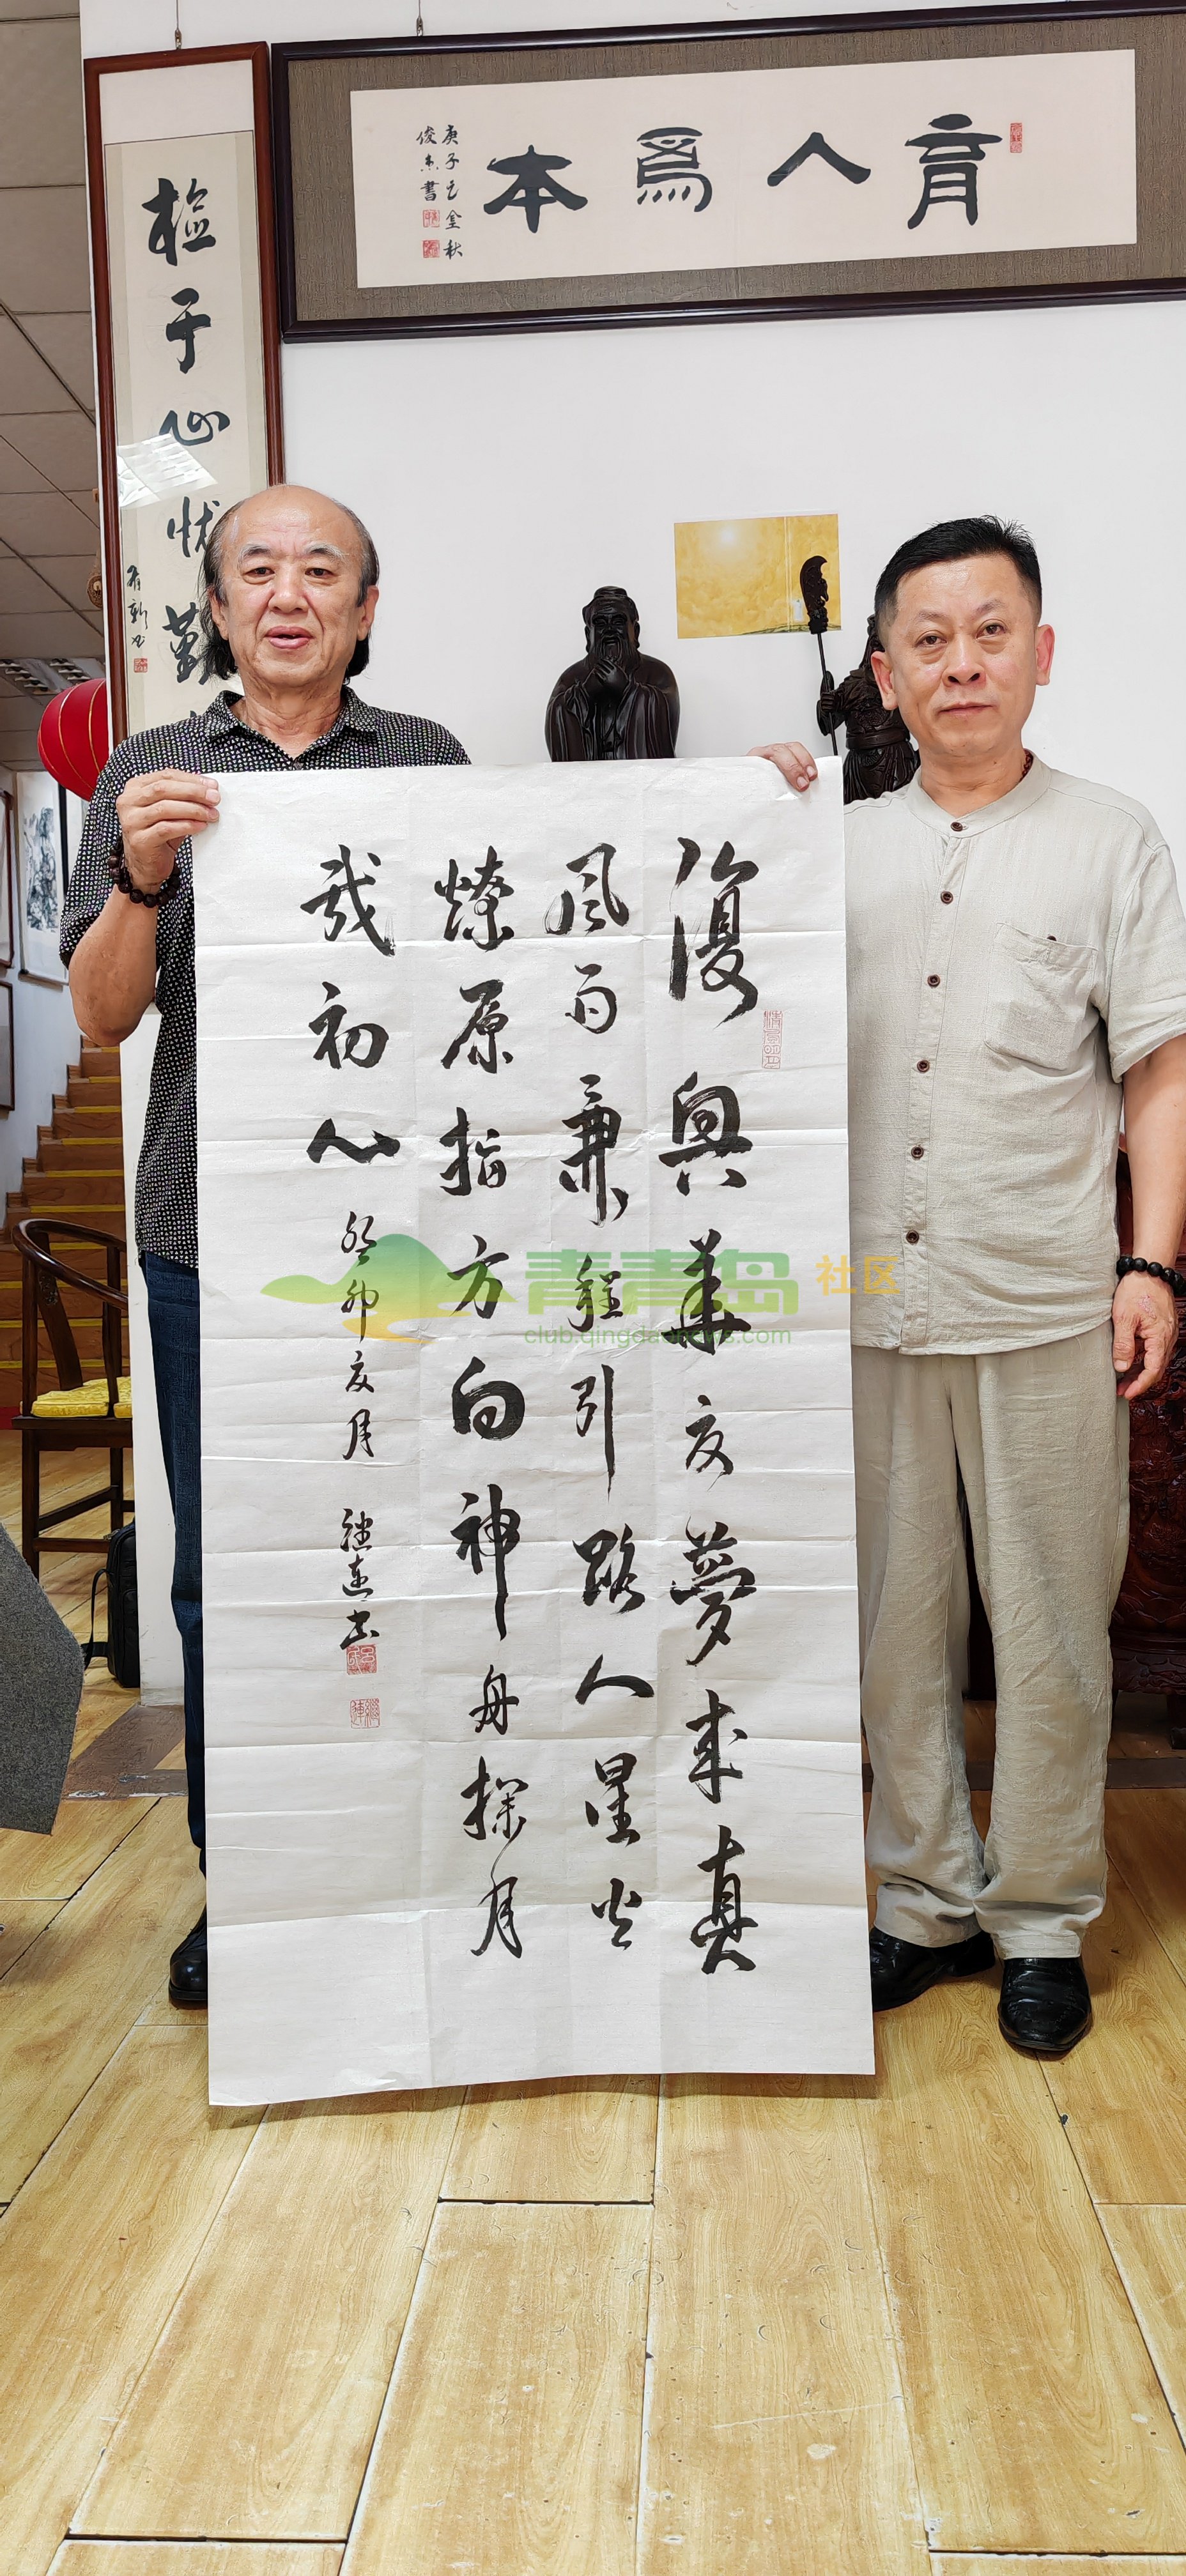 育人爲本
庚子之金秋
俊杰書
復興華夏夢成真
風雨兼程引路人星火
燎原指方向神舟探月
我初心
癸卯夏月
继連书
青青岛社区
club.qingdaonews.com